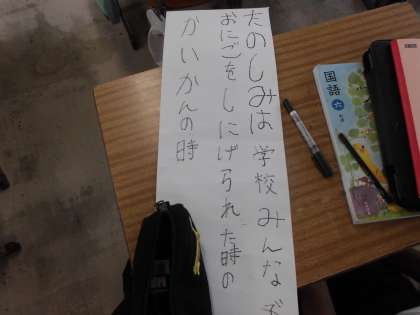 たのしみは学校みんなで
おにごをしにげられた時の
かいかんの時
国語 六